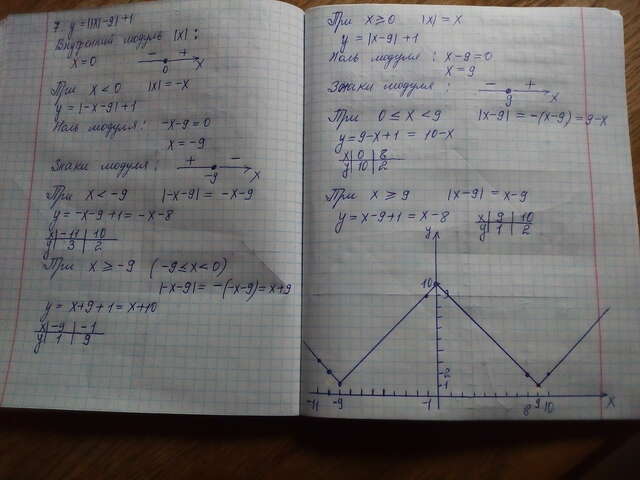 7. y=||x|-9|+1
Внутренний модуль |x|:
x=0
- + 0 x
При x<0 |x|=-x
y=|-x-9|+1
Ноль модуля: -x-9=0
x=-9
Знаки модуля: + - -9 x
При x<-9 |-x-9|=-x-9
y=-x-9+1=-x-8
x -11 10
y 3 2
При x≥-9 (-9≤x<0)
|-x-9|=-(-x-9)=x+9
y=x+9+1=x+10
x -9 -1
y 1 9
При x≥0 |x|=x
y=|x-9|+1
Ноль модуля: x-9=0
x=9
Знаки модуля: - + 9 x
При 0≤x<9 |x-9|=-(x-9)=9-x
y=9-x+1=10-x
x 0 8
y 10 2
При x≥9 |x-9|=x-9
y=x-9+1=x-8
x 9 10
y 1 2
y
10
9
2
1
-11 -9 -1 8 9 10 x